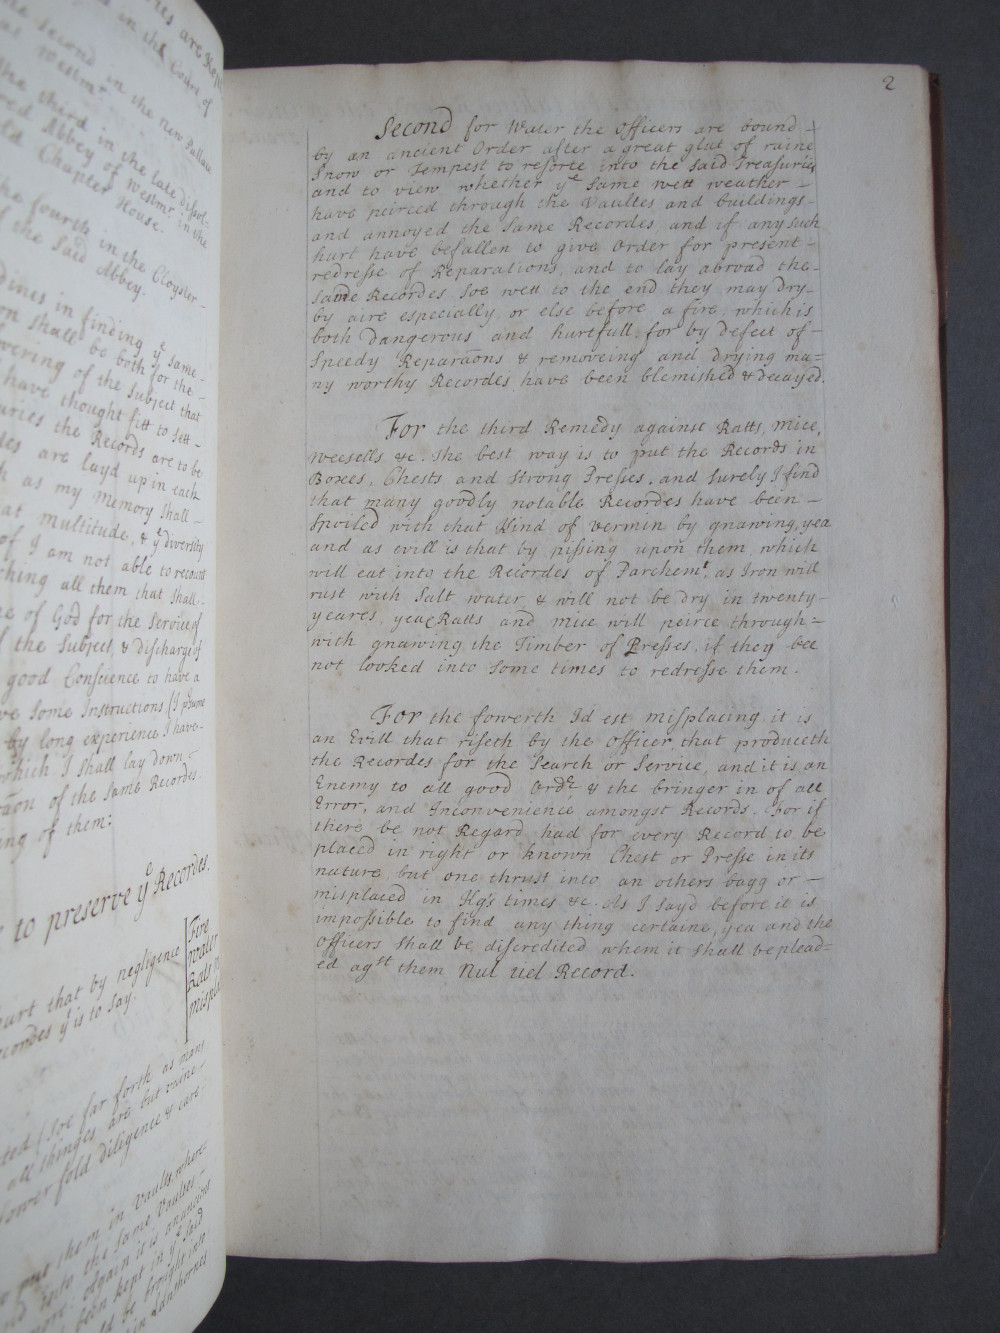 are Kept
in the Court of
second in the new Pallace
Westmr
the third in the late dissol-
Abbey of Westmr in the
old Chapter House.
the fourth in the Cloyster
of the said Abbey.
in finding ye same
shall be both for the
of the Subject that
have thought fitt to sett
the Records are to be
are layd up in each
as my Memory shall
multitude, & ye diversity
of I am not able to recount
all them that shall
of God for the Service of
the Subject, & discharge of
good Conscience to have a
some Instructions (I p̱sume
by long experience I have
which I shall lay down
of the same Recordes
of them:
to preserve ye Recordes.
hurt that by negligence
yt is to say.
Fire
water
Ratts
(soe far forth as mans
all thinges are but vaine
fold diligence & care
put them in Vaults where
into the same Vaultes
again it is an ancient
been kept in ye said
be brought into
in Lanthornes
2
Second for Water the Officers are bound -
by an ancient Order after a great glut of raine
Snow or Tempest to resorte into the said Treasuries
and to view whether ye same wett weather -
have peirced through the Vaultes and buildings -
and annoyed the same Recordes and if any such
hurt have befallen to give Order for present -
redresse of Reparations, and to lay abroad the -
same Recordes soe wett to the end they may dry -
by aire especially or else before a fire, which is
both dangerous and hurtfull, for by defect of -
speedy Reparaōns & removeing and drying ma=
ny worthy Recordes have been blemished & decayed.
For the third Remedy against Ratts, mice,
weesells &c. the best way is to put the Records in
Boxes, Chests and strong Presses, and surely I find
that many goodly notable Recordes have been -
spoiled with that Kind of vermin by gnawing, yea
and as evill is that by pissing upon them, which
will eat into the Recordes of Parchemt, as Iron will
rust with salt water, & will not be dry in twenty -
yeares, yea Ratts and mice will peirce through =
with gnawing the Timber of Presses, if they bee
not looked into some times to redresse them.
For the fowerth Id est misplacing it is
an Evill that riseth by the Officer that produceth
the Recordes for the Search or Service, and it is an
Enemy to all good Ordr & the bringer in of all
Error, and Inconvenience amongst Records. For if
there be not Regard had for every Record to be
placed in right or known Chest or Presse in its
nature, but one thrust into an others bagg or -
misplaced in Kgs times &c. As I sayd before it is
impossible to find any thing certaine, yea and the
Officers shall be discredited whem it shall be plead=
ed agst them Nul uel Record.